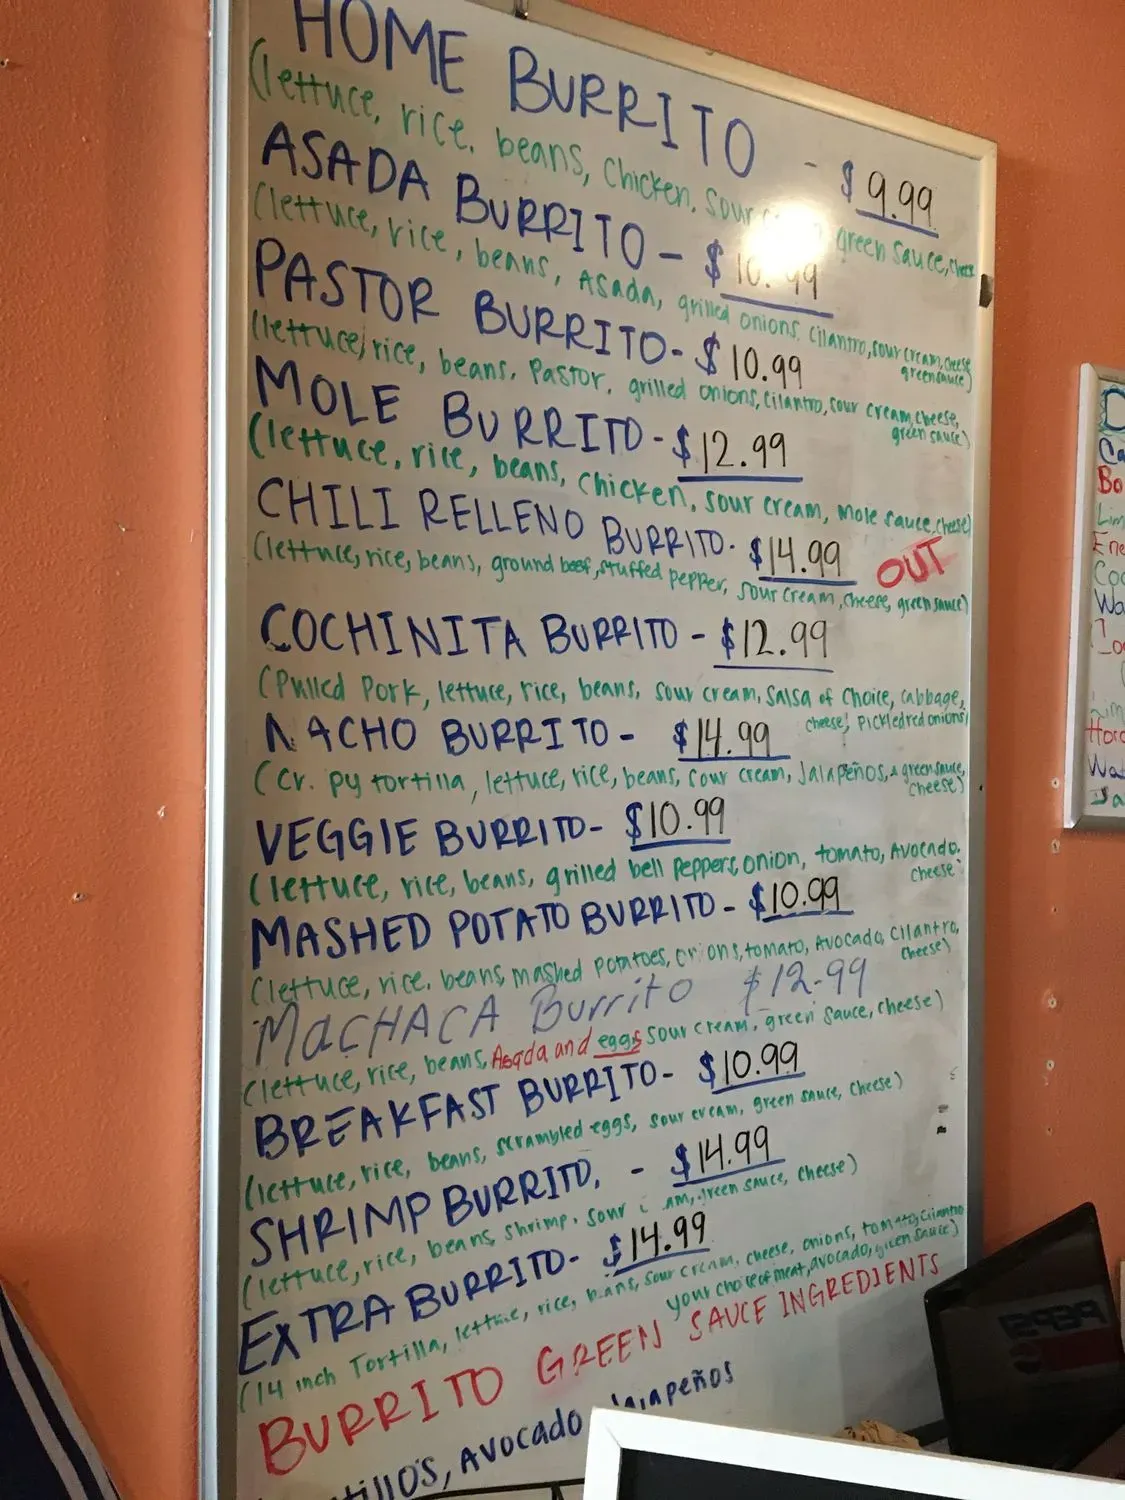 HOME BURRITO - $9.99
(lettuce, rice, beans, chicken, sour green sauce, cheese
ASADA BURRITO - $10.99
(lettuce, rice, beans, Asada, grilled onions, cilantro, sour cream, cheese
green sauce)
PASTOR BURRITO - $10.99
(lettuce, rice, beans, Pastor, grilled onions, cilantro, sour cream, cheese,
green sauce)
MOLE BURRITO - $12.99
(lettuce, rice, beans, chicken, sour cream, mole sauce, cheese)
CHILI RELLENO BURRITO - $14.99 OUT
(lettuce, rice, beans, ground beef, stuffed pepper, sour cream, cheese, green sauce)
COCHINITA BURRITO - $12.99
(Pulled Pork, lettuce, rice, beans, sour cream, salsa of choice, cabbage,
cheese, pickled red onions)
NACHO BURRITO - $14.99
(cr. py tortilla, lettuce, rice, beans, sour cream, Jalapeños, green sauce,
cheese)
VEGGIE BURRITO - $10.99
(lettuce, rice, beans, grilled bell peppers, onion, tomato, Avocado,
cheese
MASHED POTATO BURRITO - $10.99
(lettuce, rice, beans, mashed potatoes, onions, tomato, Avocado, cilantro,
cheese)
MACHACA Burrito $12.99
(lettuce, rice, beans, Asada and eggs sour cream, green sauce, cheese)
BREAKFAST BURRITO - $10.99
(lettuce, rice, beans, scrambled eggs, sour cream, green sauce, cheese)
SHRIMP BURRITO, - $14.99
(lettuce, rice, beans, shrimp, sour green sauce, cheese)
EXTRA BURRITO - $14.99
(14 inch Tortilla, lettuce, rice, beans, sour cream, cheese, onions, tomato, cilantro
your choice of meat, avocado, green sauce)
BURRITO GREEN SAUCE INGREDIENTS
AVOCADO Jalapeños
PEPSI